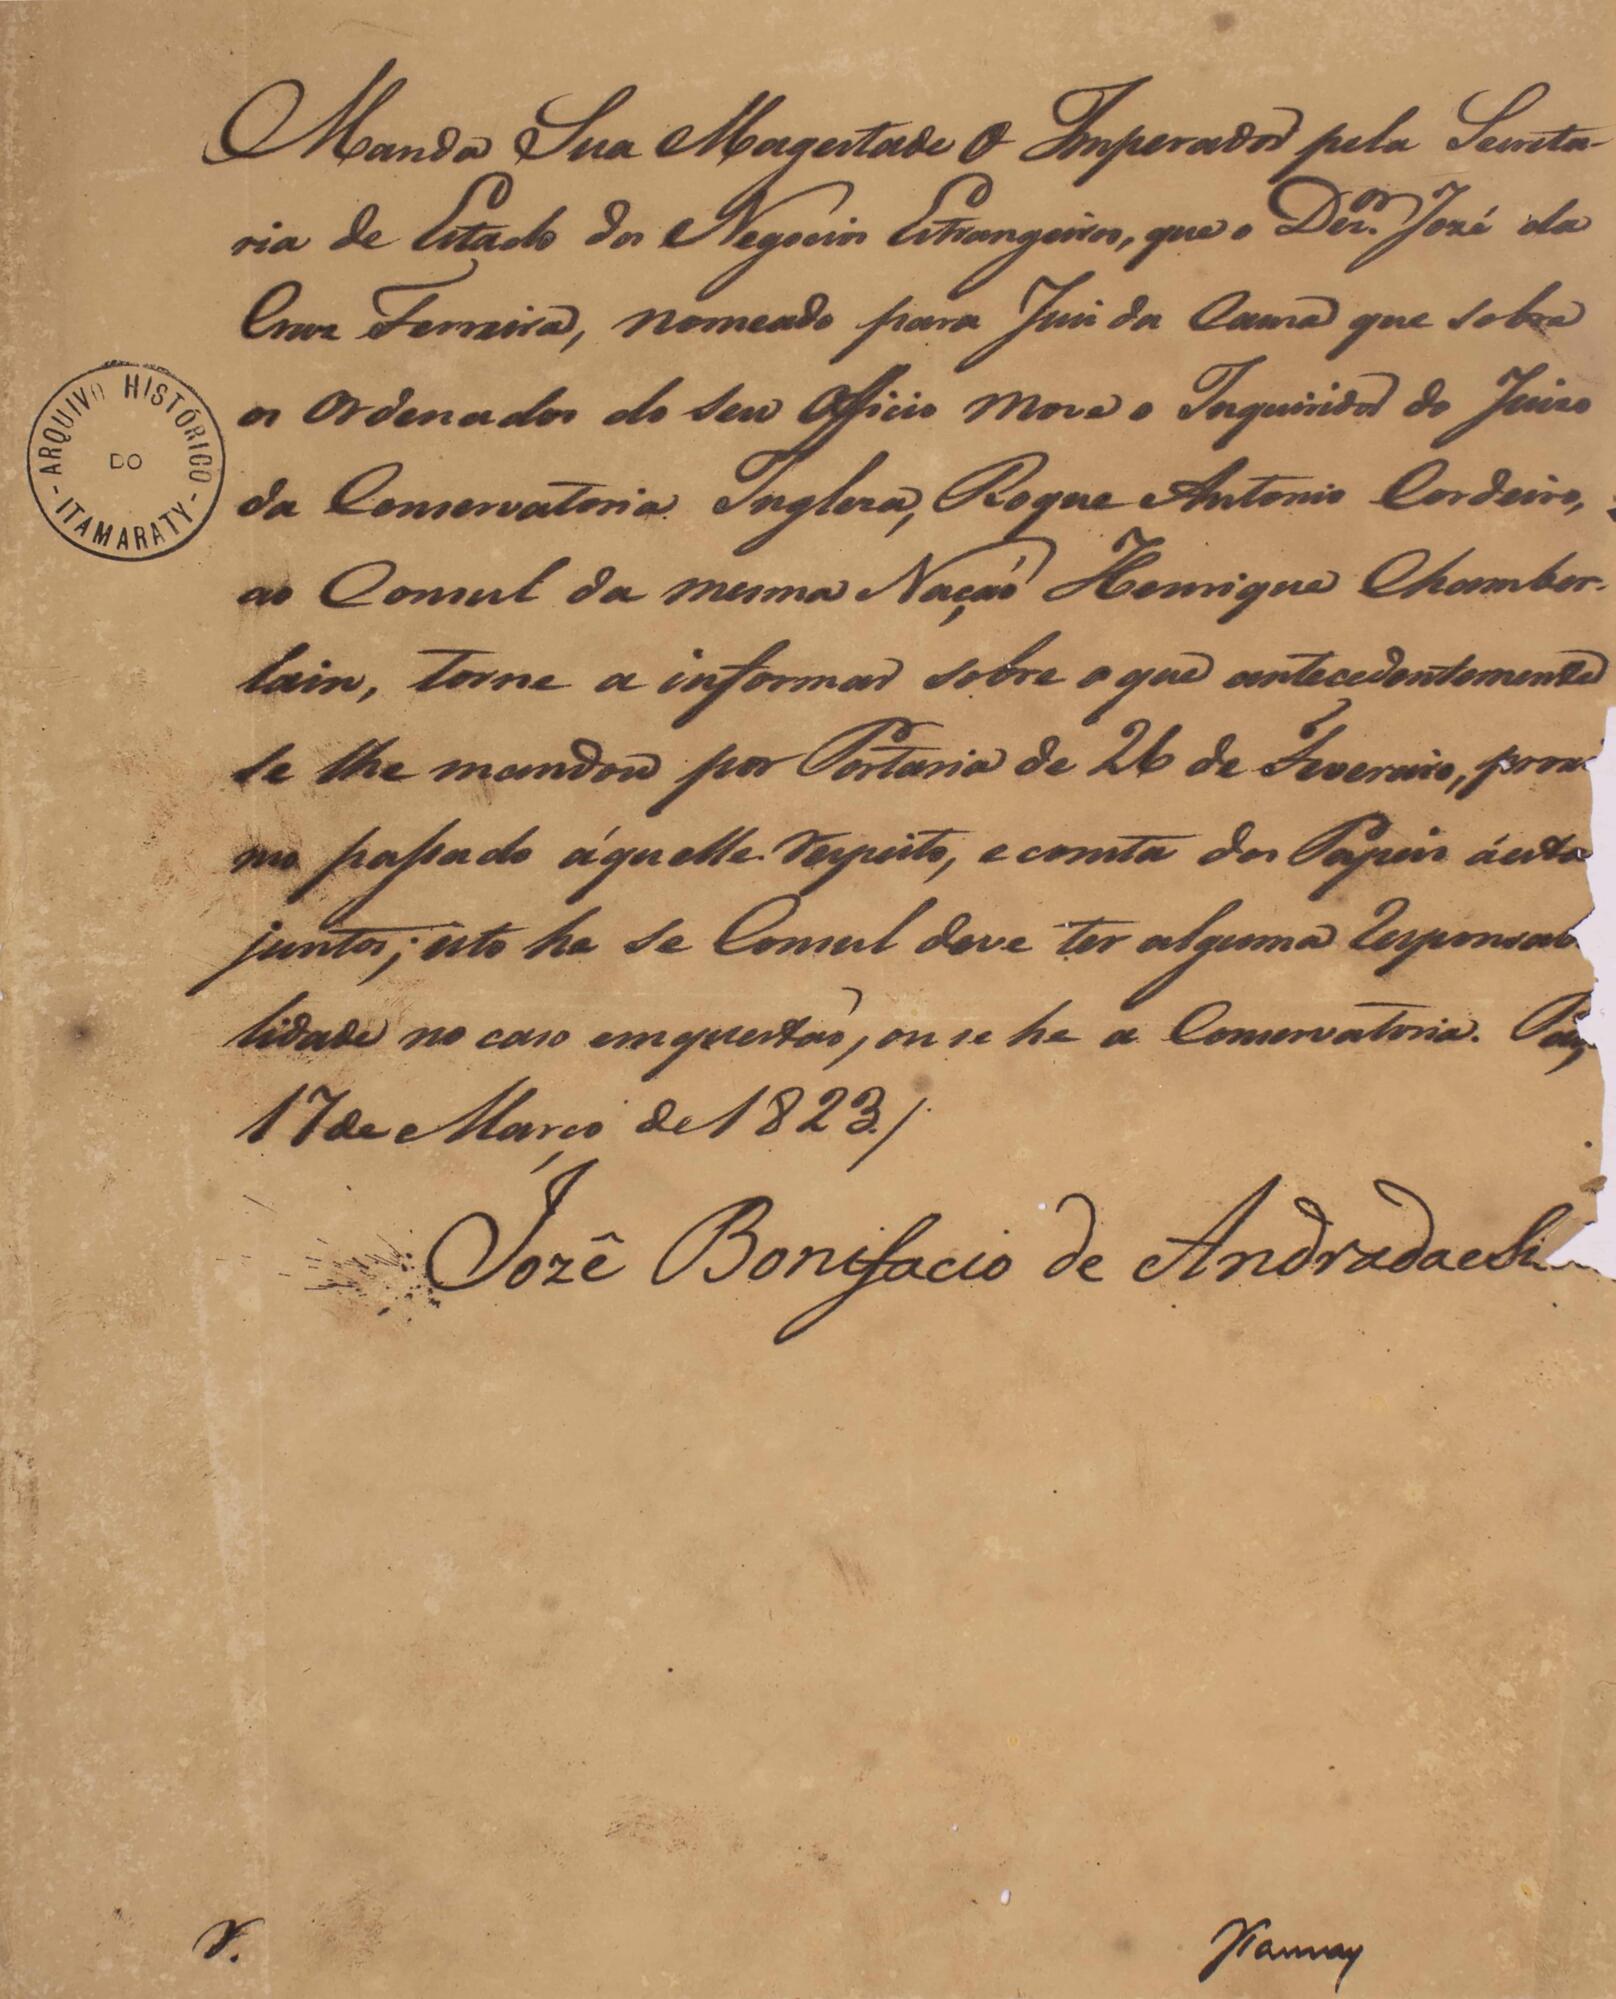 Manda Sua Magestade O Imperador pela Secreta-
ria de Estado dos Negocios Estrangeiros, que o Dez.or Jozé da
Cruz Ferreira, nomeado para Juiz da Causa que sobre
os Ordenados do seu Officio move o Inquiridor do Juizo
da Conservatoria Ingleza, Roque Antonio Cordeiro,
ao Consul da mesma Nação Henrique Chamber-
lain, torne a informar sobre o que antecedentemente
se lhe mandou por Portaria de 26 de Fevereiro, proxi
mo passado áquelle respeito, e consta dos Papeis á esta
juntos; isto he se Consul deve ter alguma responsabi
lidade no caso em questão, ou se he a Conservatoria. Paço
17 de Março de 1823./
Jozê Bonifacio de Andrada e Sil
ARQUIVO HISTÓRICO
DO
- ITAMARATY -